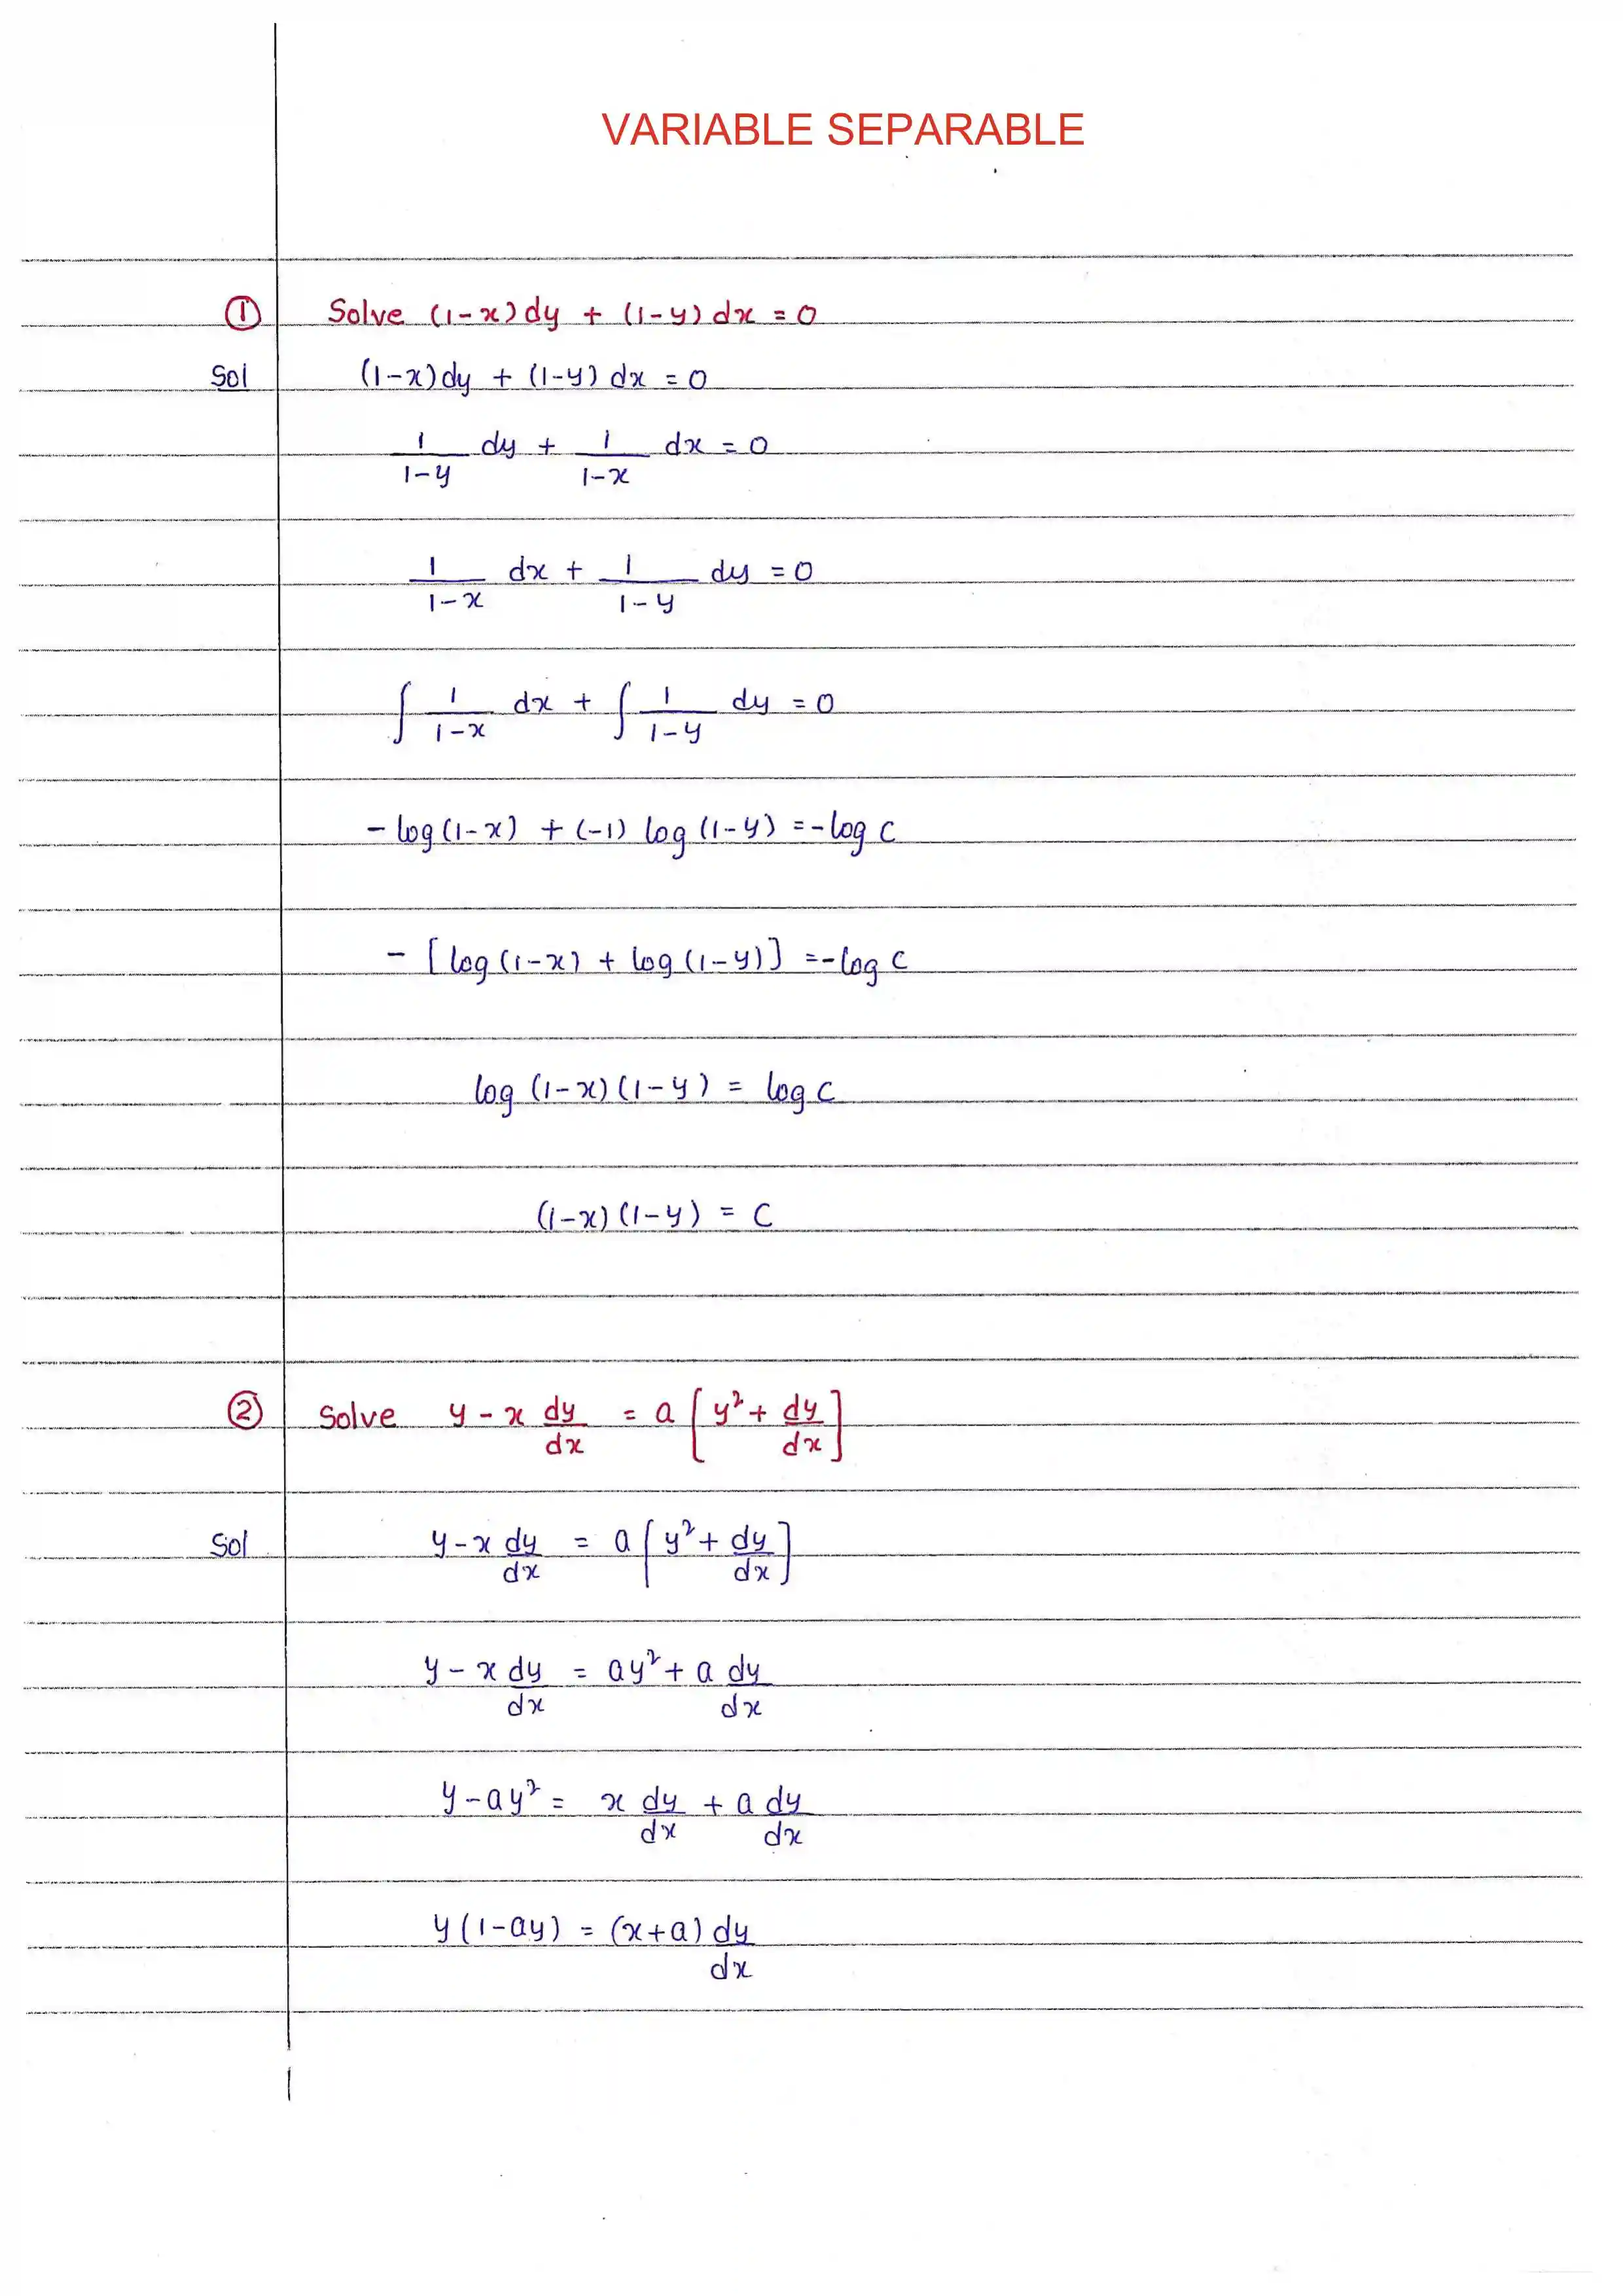 VARIABLE SEPARABLE
① Solve (1-x)dy + (1-y)dx = 0
Sol (1-x)dy + (1-y)dx = 0
1/(1-y) dy + 1/(1-x) dx = 0
1/(1-x) dx + 1/(1-y) dy = 0
∫ 1/(1-x) dx + ∫ 1/(1-y) dy = 0
-log(1-x) + (-1) log(1-y) = -log c
-[log(1-x) + log(1-y)] = -log c
log (1-x)(1-y) = log c
(1-x)(1-y) = c
② Solve y - x dy/dx = a[y² + dy/dx]
Sol y - x dy/dx = a[y² + dy/dx]
y - x dy/dx = ay² + a dy/dx
y - ay² = x dy/dx + a dy/dx
y(1-ay) = (x+a) dy/dx